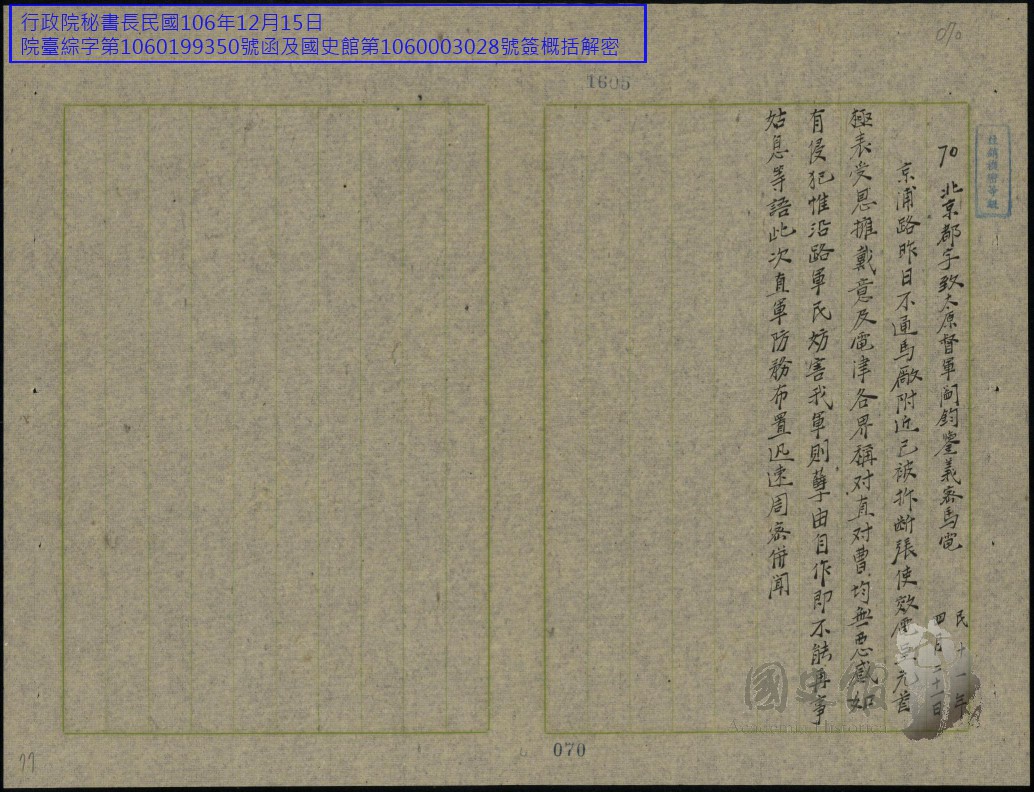 行政院秘書長民國106年12月15日
院臺綜字第1060199350號函及國史館第1060003028號簽概括解密
1605
註銷機密等級
70 北京都宇致太原督軍閻鈞鑒義密馬電
民十一年
四月二十一日
京浦路昨日不通馬厰附近已被拆断張使效電元首
極表受恩擁戴意及電津各界稱对直对曹均無惡感如
有侵犯惟沿路軍民妨害我軍則孽由自作即不能再事
姑息等語此次直軍防務布置迅速周密併聞
國史館
070
77